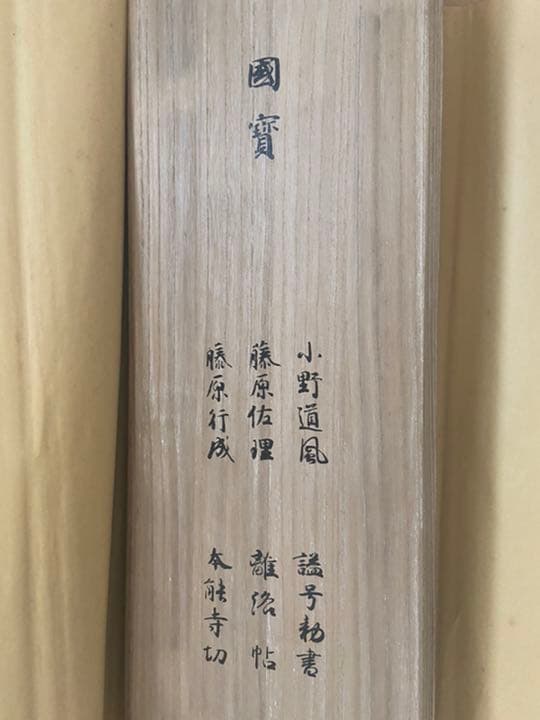 國寶
小野道風　諡号勅書
藤原佐理　離洛帖
藤原行成　本能寺切